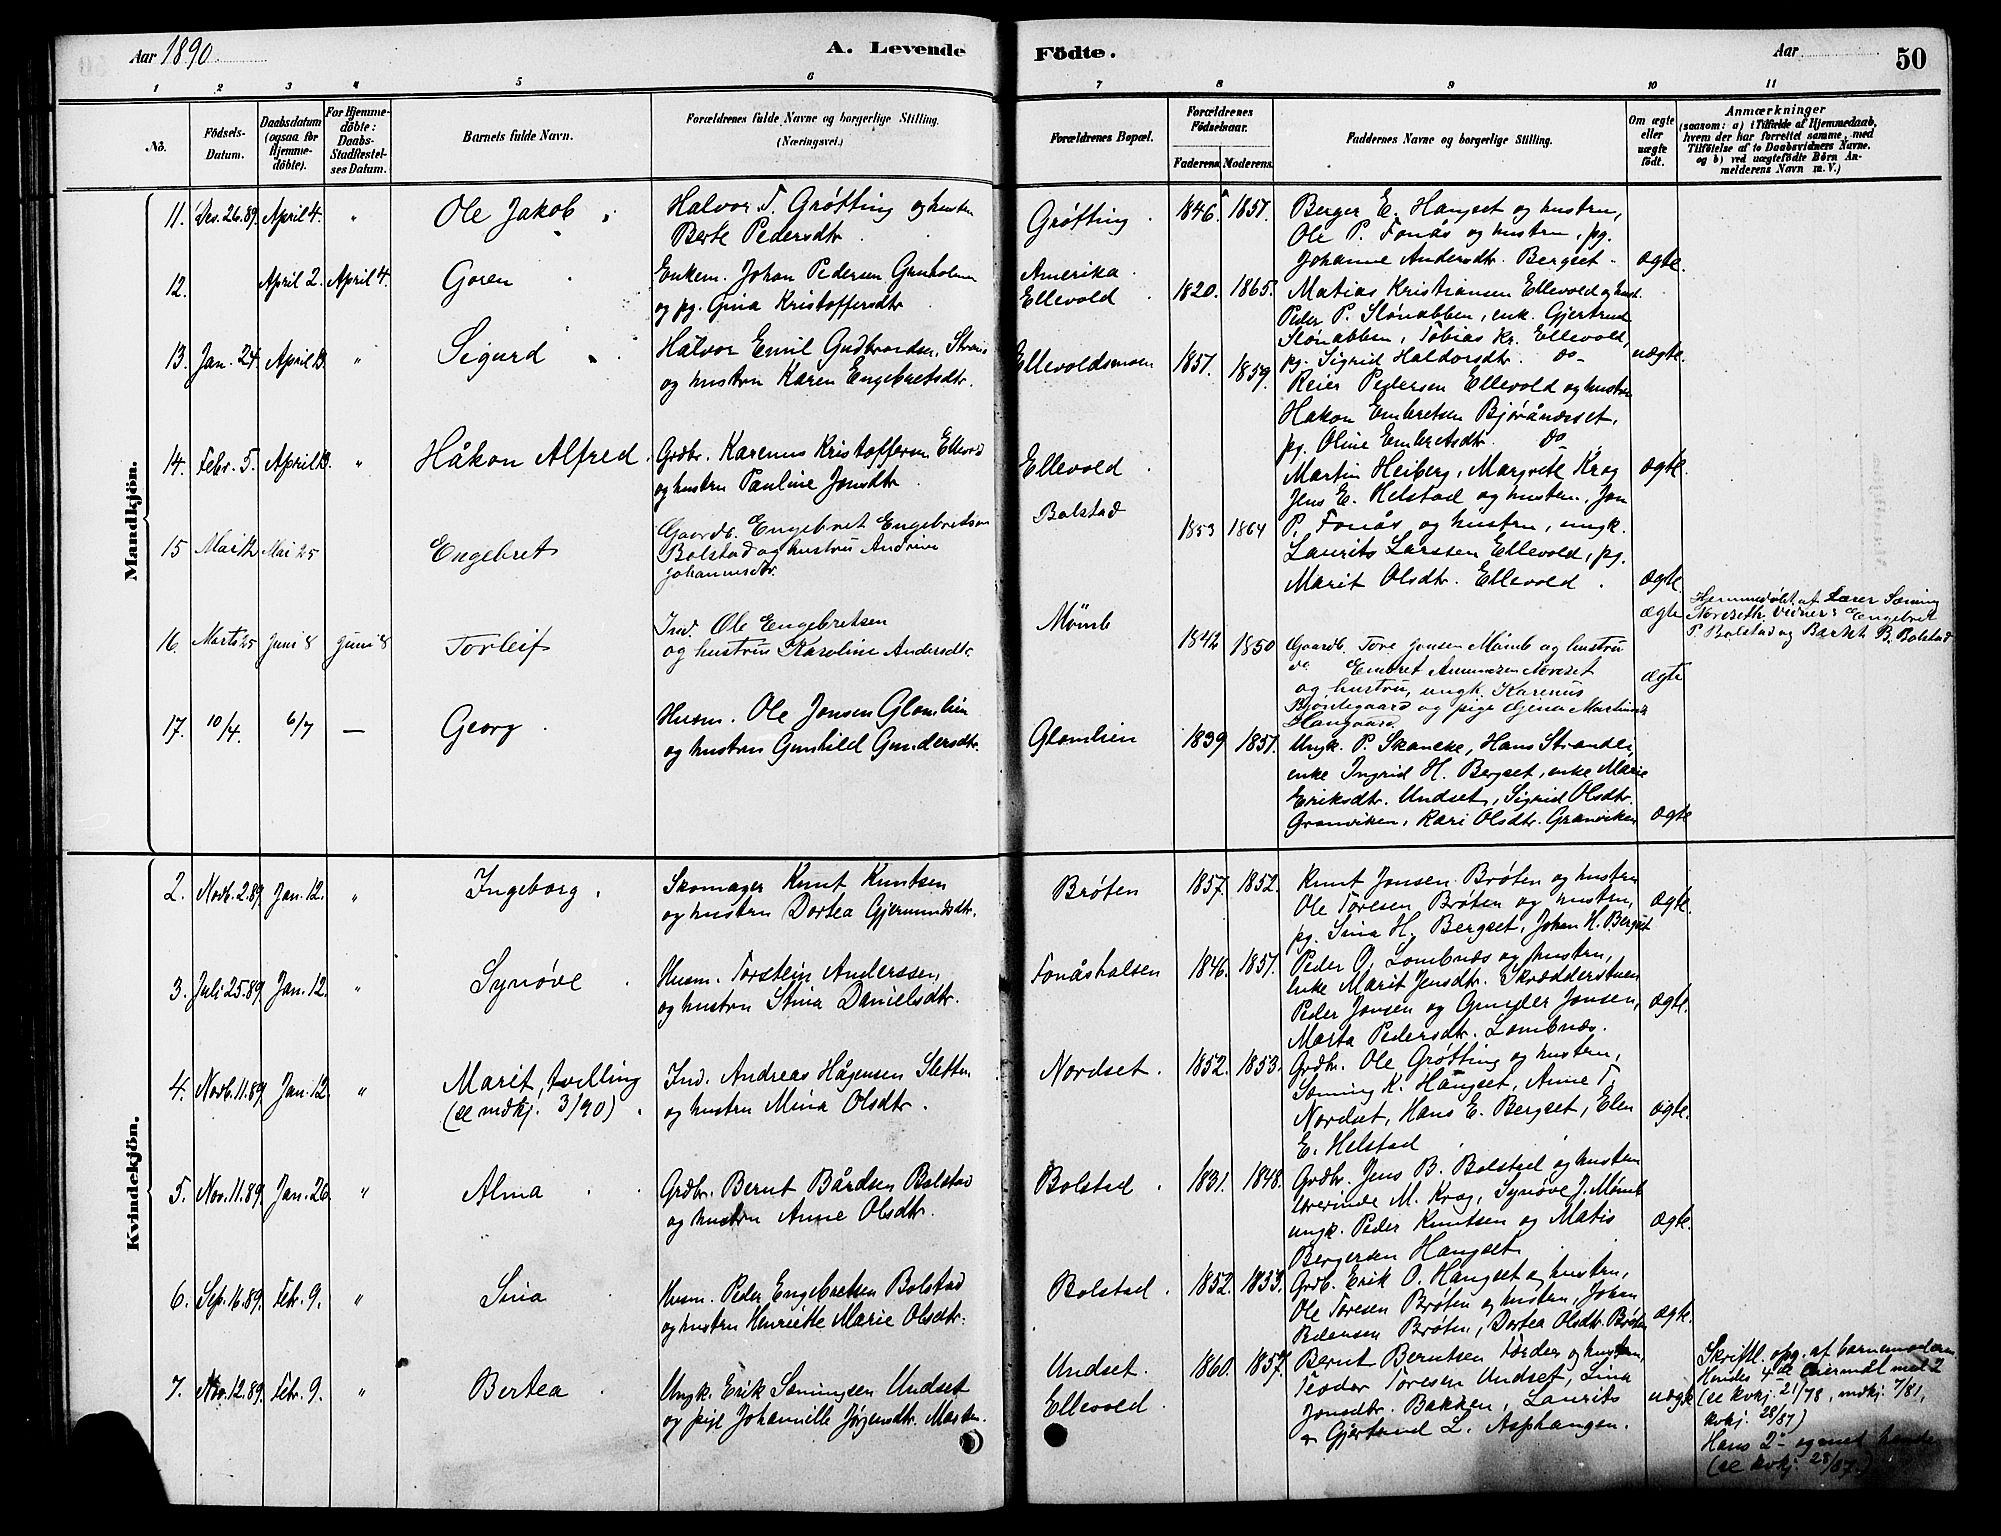 Aar 1890
A. Levende
Födte.
Aar
50
1 2 3 4 5 6 7 8 9 10 11
No.
Födsels-
Datum.
Daabsdatum
(ogsaa for
Hjemme-
döbte).
For Hjemme-
döbte:
Daabs-
Stadfæstel-
ses Datum.
Barnets fulde Navn.
Forældrenes fulde Navne og borgerlige Stilling.
(Næringsvei.)
Forældrenes Bopæl.
Forældrenes
Födselsaar.
Faderens. Moderens.
Faddernes Navne og borgerlige Stilling.
Om ægte
eller
uægte
födt.
Anmærkninger
(saasom: a) i Tilfælde af Hjemmedaab,
hvem der har forrettet samme, med
Tilföielse af to Daabsvidners Navne.
og b) ved uægtefödte Börn An-
melderens Navn m. V.)
Mandkjön.
11. Des. 26. 89. April 4. "
Ole Jakob
Halvor T. Grøtting og hustru
Berte Pedersdtr.
Grøtting
1846. 1851.
Berger E. Hangset og hustru,
Ole P. Fonås og hustru, pg.
Johanne Andersdtr. Bergset.
ægte.
12. April 2. April 4.
Goren
Enkem. Johan Pedersen
og pg. Gina Kristoffersdtr
Amerika
Ellevold
1820. 1865.
Matias Kristiansen Ellevold og hust.
Peder P. Slønabben, enk. Gjertrud
Slønabben, Tobias Kr. Ellevold,
pg. Sigrid Haldorsdtr. do
uægte.
13. Jan. 24. April 13. "
Sigurd
Halvor Emil Gudbrandsen
og hustru Karen Engebretsdtr.
Ellevoldsmoen
1851. 1859.
Reier Pedersen Ellevold og hustru
Håkon Embretsen Bjøråneset,
pg. Oline Embretsdtr. do
ægte.
14. Febr. 5. April 13. "
Håkon Alfred
Grdbr. Karenus Kristoffersen Ellevold
og hustru Pauline Jonsdtr.
Ellevold
1853 1864
Martin Heiberg, Margrete Krog
Jens E. Helstad og hustru, Jon
P. Fonås og hustru, ungk.
Laurits Larssen Ellevold, pg.
Marit Olsdtr. Ellevold
ægte
15 Mai 25
Engebret
Gaardb. Engebret Engebretsen
Bolstad og hustru Andrine
Johannesdtr.
Bolstad
ægte
16. Marts 25 Juni 8 Juni 8
Torleif
Ind. Ole Engebretsen
og hustru Karoline Andersdtr.
Mømb
1842 1850
Gaardb. Tore Jonsen Mømb og hustru
do Embret
og hustru, ungk. Karenus
Bjørtegaard og pige
Haugaard.
ægte
Hjemmedøbt af Lærer Søming
Vidner: Engebret
P. Bolstad og B. Bolstad
17. 10/4. 6/7 —
Georg
Husm. Ole Jonsen Glomlien
og hustru Gunhild Gundersdtr.
Glomlien
1839 1851.
Ungk. P. Skancke, Hans Strandli,
enke Ingrid H. Bergset, enke Marie
Eriksdtr. Undset, Sigrid Olsdtr.
Granviken, Kari Olsdtr. Granviken
ægte
Kvindekjön.
2. Novb. 2. 89. Jan. 12. "
Ingeborg
Skomager Knut Knutsen
og hustru Dortea Gjermundsdtr.
Brøten
1857. 1852.
Knut Jonsen Brøten og hustru
Ole Toresen Brøten og hustru,
pg. Sina H. Bergset, Johan H. Bergset
ægte.
3. Juli 25. 89. Jan. 12. "
Synøve
Husm. Torstein Anderssen
og hustru Stina Danielsdtr.
Fonåshalsen
1846. 1851.
Peder O. Lombnæs og hustru,
enke Marit Jensdtr. Skrædderstuen
Peder Jonsen og Gunder Jonsen,
Marta Pedersdtr. Lombnæs.
ægte.
4. Novb. 11. 89. Jan. 12. "
Marit, tvilling
(se mdkj. 3/90)
Ind. Andreas Hågensen Sletten
og hustru Mina Olsdtr.
Nordset.
1852. 1853.
Grdbr. Ole Grøtting og hustru,
Søming K. Hangset, Anne T.
Nordset, Hans E. Bergset, Elen
E. Helstad
ægte.
5. Nov. 11. 89. Jan. 26. "
Alma
Grdbr. Bernt Bårdsen Bolstad
og hustru Anne Olsdtr.
Bolstad
1831. 1848.
Grdbr. Jens B. Bolstad og hustru
lærerinde M. Krog, Synøve J. Mømb
ungk. Peder Knutsen og Matis
Bergersen Hangset
ægte.
6. Sep. 16. 89. Febr. 9. "
Sina
Husm. Peder Engebretsen Bolstad
og hustru Henriette Marie Olsdtr.
Bolstad
1852. 1853.
Grdb. Erik O. Hangset og hustru,
Ole Toresen Brøten og hustru, Johan
Brøten, Dortea Olsdtr. Brøten
ægte.
7. Nov. 12. 89. Febr. 9. "
Bertea
Ungk. Erik Sømingsen Undset
og pige Johannille Jørgensdtr.
Undset.
Ellevold.
1860. 1857.
Bernt Berntsen og hustru,
Teodor Toresen Undset, Lina
Jonsdtr. Bakken, Laurits
og Gjertrud L. Asphaugen.
uægte
Skriftl. opg. af barnemoderen
Hendes 4de leiermål med 2
(se kvkj. 21/78, mdkj. 7/81,
kvkj. 28/87)
Hans 2. og met hende
(se kvkj. 28/87.)